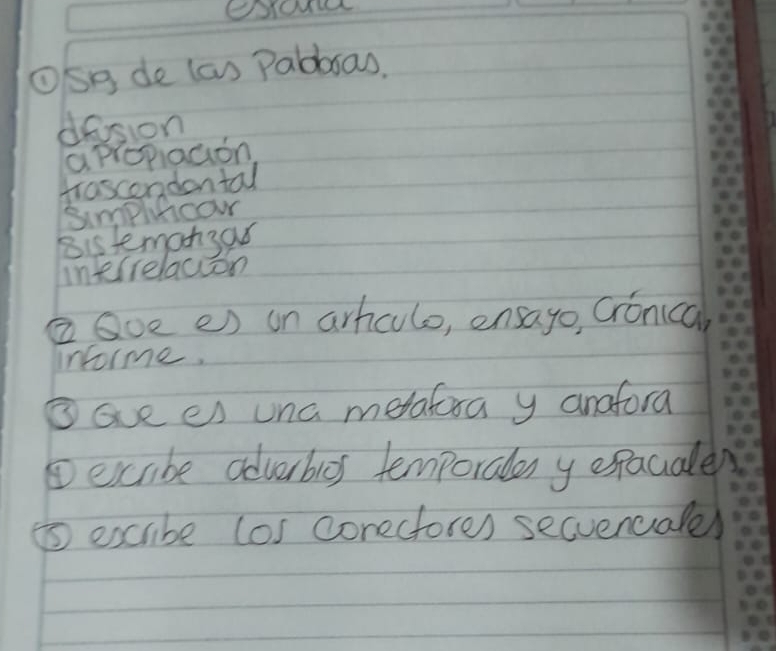 ① Sig de las Palabras.
difusion
apropiación
trascendental
Simplificar
Sistematizar
interrelación
② Que es un articulo, ensayo, Crónica,
informe.
③ Que es una metafora y anafora
④ escribe adverbios temporales y espaciales.
⑤ escribe los conectores secuenciales